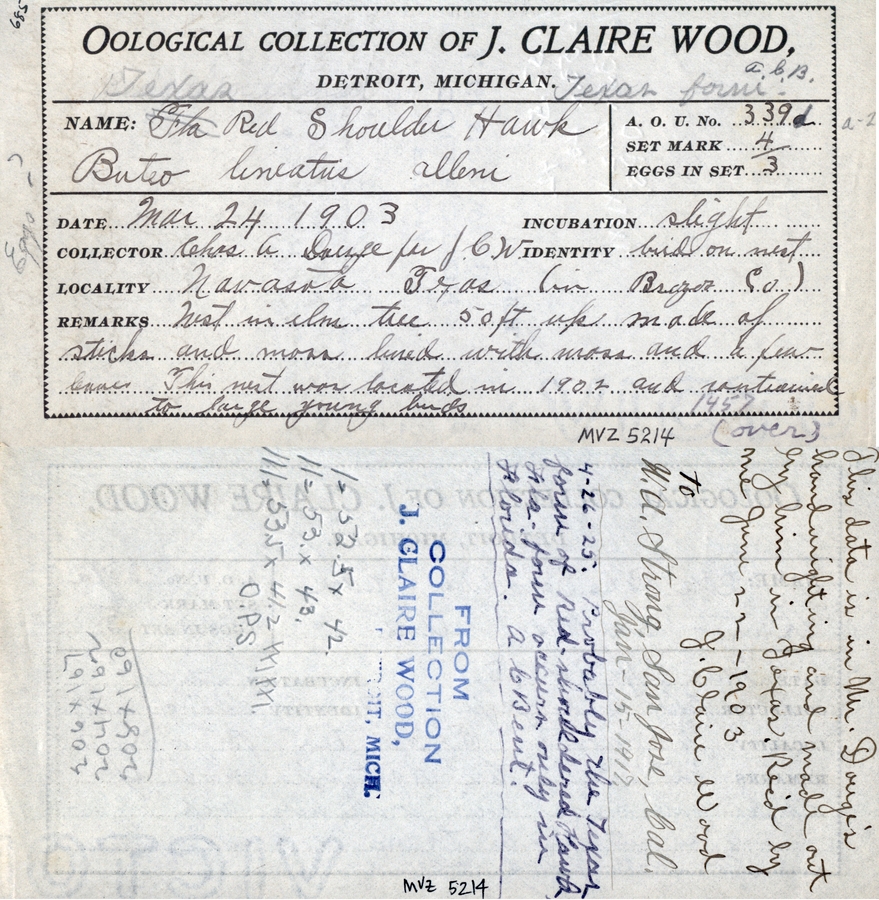 685
OOLOGICAL COLLECTION OF J. CLAIRE WOOD,
DETROIT, MICHIGAN.
Texas
Texas form. A.C.B.
NAME: Fla Red Shoulder Hawk
Buteo lineatus alleni
A. O. U. No. 339d
SET MARK 4
EGGS IN SET 3
a-2
Eggs -
DATE Mar 24 1903
INCUBATION slight
COLLECTOR Chas A Dorge for J C W
IDENTITY bird on nest
LOCALITY Navasota Texas (in Brazos Co)
REMARKS Nest in elm tree 50 ft up made of
sticks and moss lined with moss and a few
leaves This nest was located in 1902 and contained
to large young birds
1457
(over)
MVZ 5214
This data is in Mr. Dorge's
handwriting and made out
by him in Texas. Rec'd by
me June 22 - 1903
J. Claire Wood
To
W. H. Strong, San Jose, Cal.
Jan-15-1917
4-26-25. Probably the Texas
form of Red-shouldered Hawk
Fla. form occurs only in
Florida. A C Bent.
FROM
COLLECTION
J. CLAIRE WOOD,
DETROIT, MICH.
1- 52.5 x 42.
11- 53 x 43.
111- 53.5 x 42
OPS.
MVZ 5214